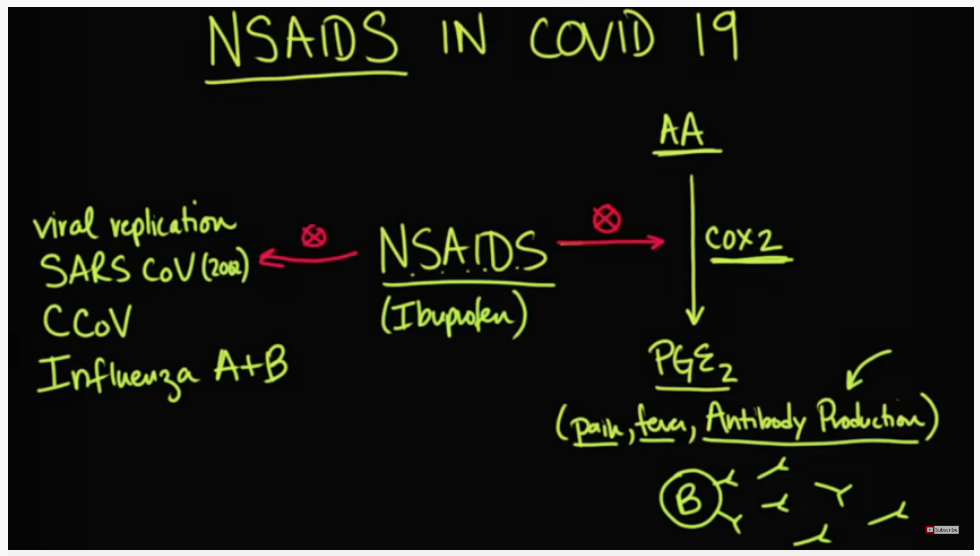 NSAIDS IN COVID 19
AA
viral replication
SARS CoV (2002)
CCoV
Influenza A+B
N.S.A.I.D.S
(Ibuprofen)
COX2
PGE2
(pain, fever, Antibody Production)
B
Subscribe